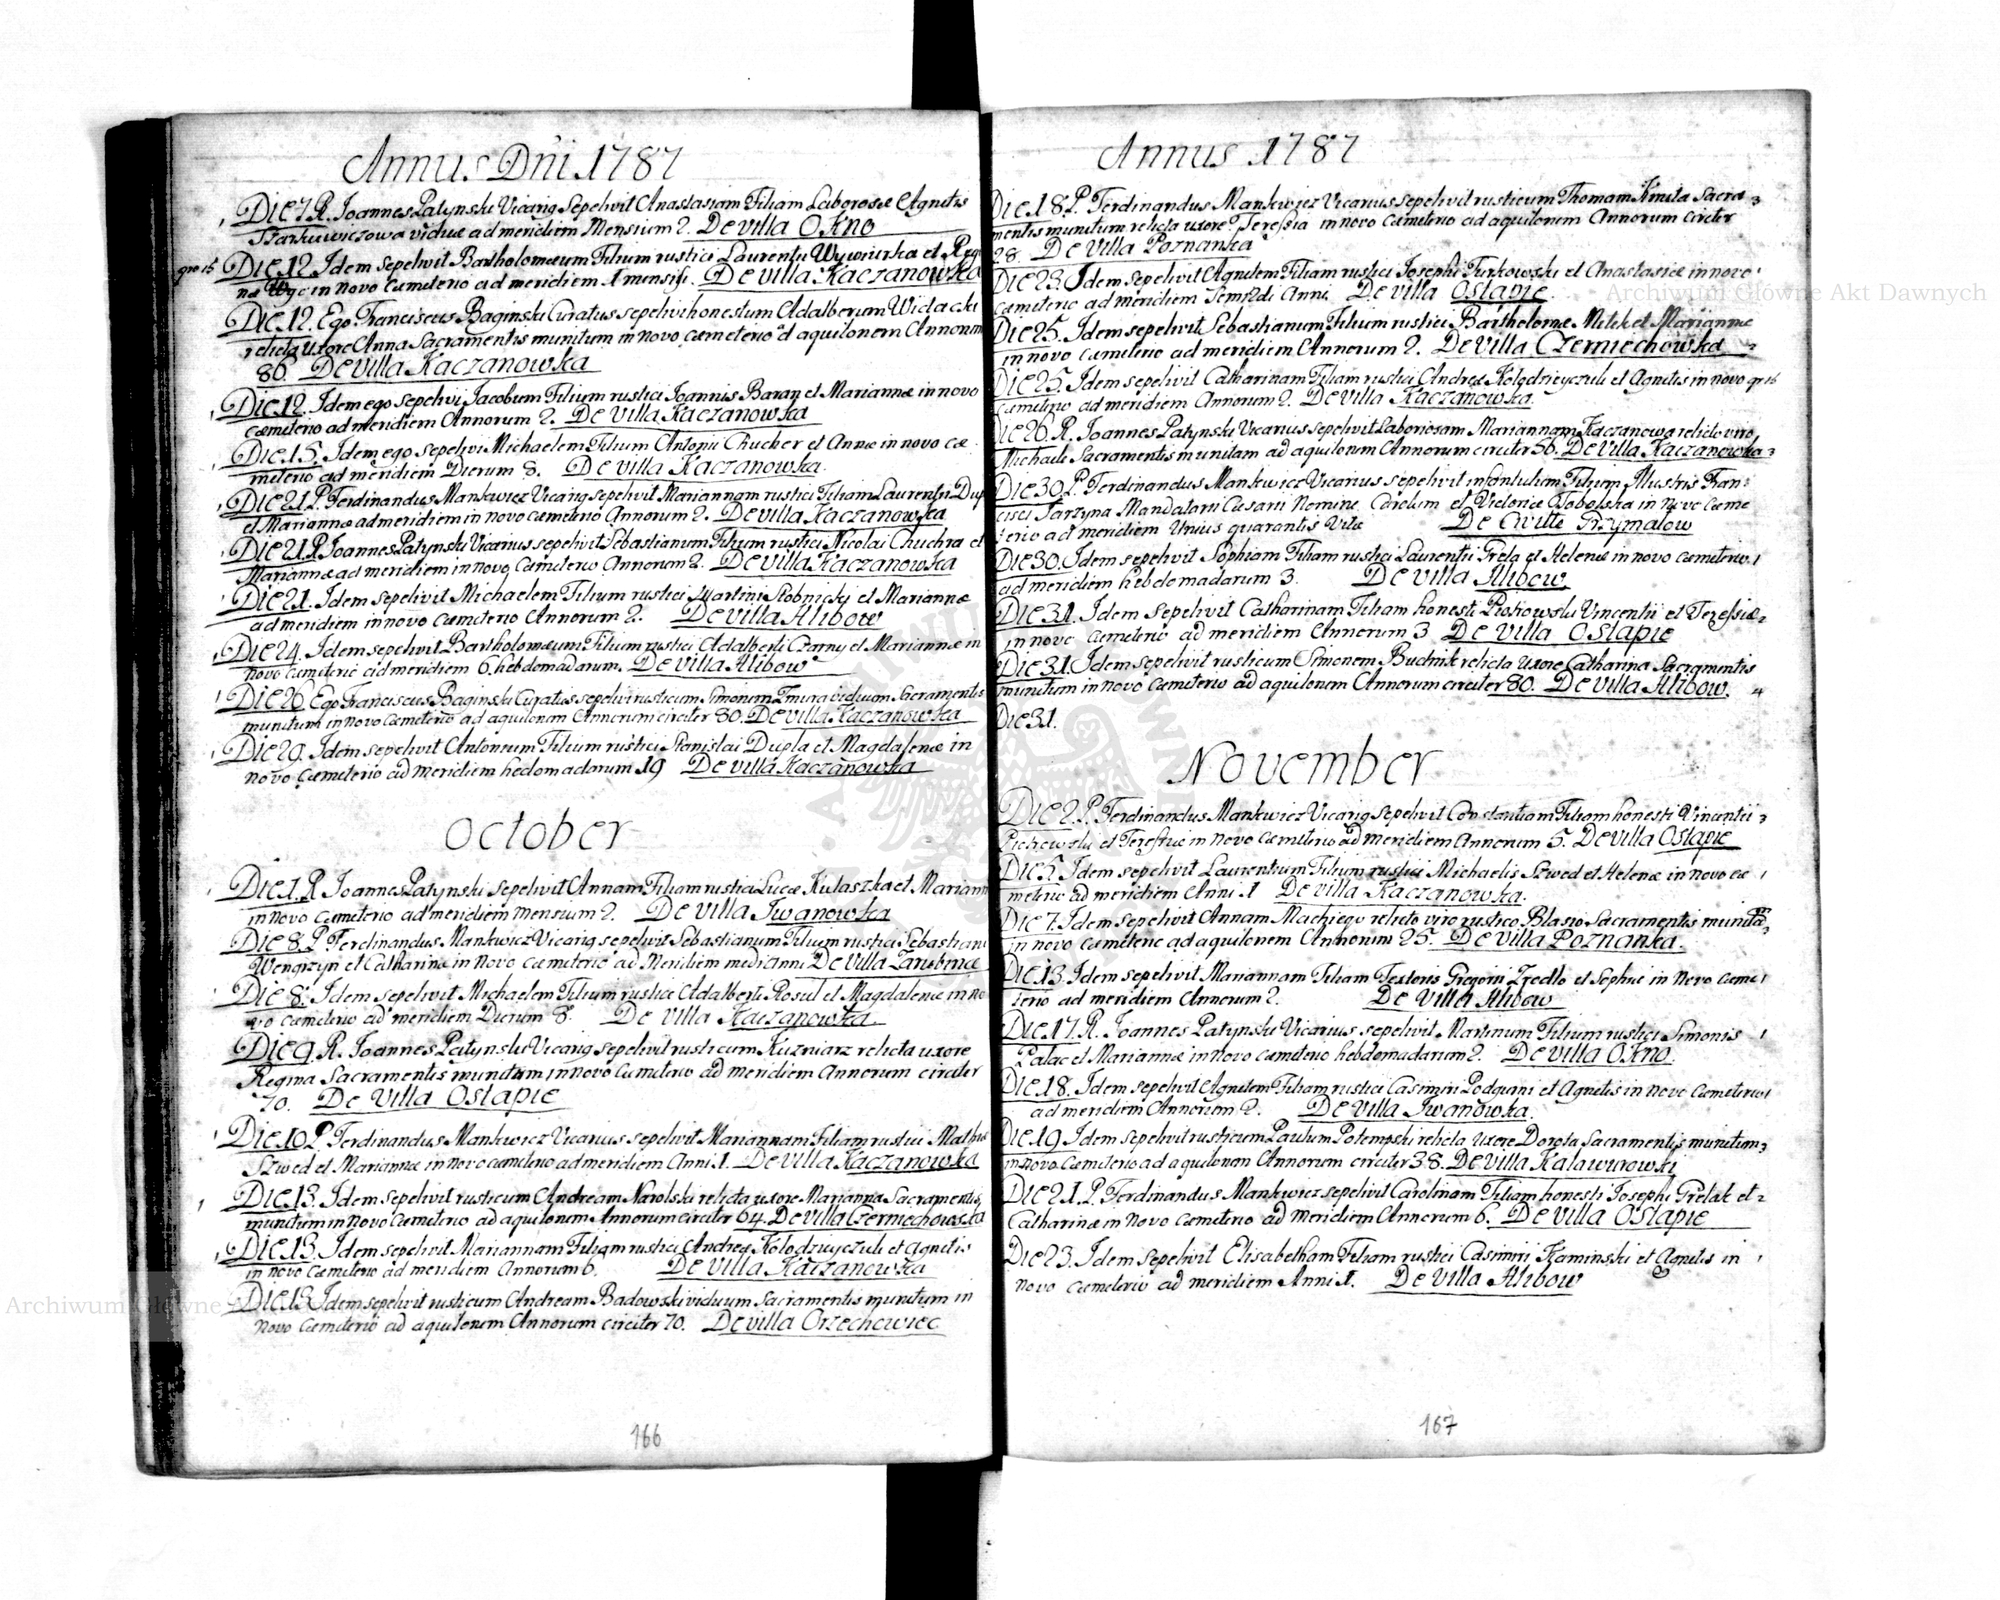 Annus Dñi 1787
Die 7 R. Joannes Patynski Vicarig sepelivit Anastasiam Filiam Laborosæ Agnetis
Szarkiewiczowa viduæ ad meridiem Mensium 2. De villa Okno
gro 15 Die 12. Idem sepelivit Bartholomæum Filium rustici Laurentii Wywiurka et Regi
næ in novo Cæmeterio ad meridiem 1 mensis. De villa Kaczanowka
Die 12. Ego Franciscus Baginski Curatus sepelivi honestum Adalberum Widacki
relicta uxore Anna Sacramentis munitum in novo cæmeterio ad aquilonem Annorum
86. De villa Kaczanowka
Die 12. Idem ego sepelivi Jacobum Filium rustici Joannis Baran et Mariannæ in novo
Cæmeterio ad meridiem Annorum 2. De villa Kaczanowka
Die 15. Idem ego sepelivi Michaelem Filium Antonii Chucher et Annæ in novo cæ
meterio ad meridiem Dierum 8. De villa Kaczanowka.
Die 21 P. Ferdinandus Mankwicz Vicarig sepelivit Mariannam rustici Filiam Laurentii Dup
et Mariannæ ad meridiem in novo cæmeterio Annorum 2. De villa Kaczanowka
Die 21. R. Joannes Patynski Vicarius sepelivit Sebastianum Filium rustici Nicolai Chuchra et
Mariannæ ad meridiem in novo Cæmeterio Annorum 2. De villa Kaczanowka
Die 21. Idem sepelivit Michaelem Filium rustici Martini Słobnicki et Mariannæ
ad meridiem in novo Cæmeterio Annorum 2. De villa Alibow
Die 24. Idem sepelivit Bartholomæum Filium rustici Adalberti Czarny et Mariannæ in
novo Cæmeterio ad meridiem 6 hebdomadarum. De villa Alibow
Die 26 Ego Franciscus Baginski Curatus sepelivi rusticum Simonem Zmura viduum Sacramentis
munitum in novo Cæmeterio ad aquilonem Annorum circiter 80. De villa Kaczanowka
Die 29. Idem sepelivit Antonium Filium rustici Stanislai Dupla et Magdalenæ in
novo Cæmeterio ad meridiem hedomadarum 19 De villa Kaczanowka
October
Die 1. R Joannes Patynski sepelivit Annam Filiam rustici Lucæ Kulaszka et Mariann
in novo Cæmeterio ad meridiem mensium 2. De villa Iwanowka
Die 8. P Ferdinandus Mankwicz Vicarig sepelivit Sebastianum Filium rustici Sebastiani
Wengrzyn et Catharinæ in novo Cæmeterio ad Meridiem medii anni De villa
Die 8. Idem sepelivit Michaelem Filium rustici Adalberti Rosul et Magdalenæ in no
vo Cæmeterio ad meridiem Dierum 8. De villa Kaczanowka.
Die 9. R. Joannes Patynski Vicarig sepelivit rusticum Kuzniarz relicta uxore
Regina Sacramentis munitum in novo Cæmeterio ad meridiem Annorum circiter
70. De villa Ostapie
Die 10 P Ferdinandus Mankwicz Vicarius sepelivit Mariannam Filiam rustici Mathæi
Szwed et Mariannæ in novo cæmeterio ad meridiem Anni 1. De villa Kaczanowka
Die 13. Idem sepelivit rusticum Andream Narolski relicta uxore Marianna Sacramentis
munitum in novo Cæmeterio ad aquilonem Annorum circiter 64. De villa Czerniechowska
Die 13. Idem sepelivit Mariannam Filiam rustici Andreæ Kolodzieyczuk et Agnetis
in novo Cæmeterio ad meridiem Annorum 6. De villa Kaczanowka
Die 13 Idem sepelivit rusticum Andream Badowski viduum Sacramentis munitum in
novo Cæmeterio ad aquilonem Annorum circiter 70. De villa Orzechowiec
166
Annus 1787
Die 18. P. Ferdinandus Mankwicz Vicarius sepelivit rusticum Thomam Kmita Sacra
mentis munitum relicta uxore Teressia in novo Cæmeterio ad aquilonem Annorum circiter
28. De villa Poznanka
Die 23. Idem sepelivit Agnetem Filiam rustici Josephi Turkowski et Anastasiæ in novo
Cæmeterio ad meridiem Anni De villa Ostapie.
Die 25. Idem sepelivit Sebastianum Filium rustici Bartholomæ Mitek et Mariannæ
in novo Cæmeterio ad meridiem Annorum 2. De villa Czerniechowska
Die 25. Idem sepelivit Catharinam Filiam rustici Andreæ Kolodzieyczuk et Agnetis in novo gr 15
Cæmeterio ad meridiem Annorum 2. De villa Kaczanowka.
Die 26. R. Joannes Patynski Vicarius sepelivit Laboriosam Mariannam Kaczanowa relicto viro
Michaele Sacramentis munitam ad aquilonem Annorum circiter 56. De villa Kaczanowka
Die 30 P. Ferdinandus Mankwicz Vicarius sepelivit infantulum Filium Illustris Fran
cisci Tarzyna Mandatarii Cæsarii Nomine Carolum et Victoriæ Tobolska in Novo Cæme
terio ad meridiem Unius quarantis Vitæ De Civitte Grzymalow
Die 30. Idem sepelivit Sophiam Filiam rustici Laurentii Grela et Helenæ in novo Cæmeterio
ad meridiem hebdomadarum 3. De villa Alibow.
Die 31. Idem sepelivit Catharinam Filiam honesti Piotrowski Vincentii et Teressiæ
in novo Cæmeterio ad meridiem Annorum 3 De villa Ostapie
Die 31. Idem sepelivit rusticum Simonem Budnik relicta uxore Catharina Sacramentis
munitum in novo Cæmeterio ad aquilonem Annorum circiter 80. De villa Alibow.
Die 31.
November
Die 2 P. Ferdinandus Mankwicz Vicarig sepelivit Constantiam Filiam honesti Vincentii
Piotrowski et Teressiæ in novo Cæmeterio ad meridiem Annorum 5. De villa Ostapie
Die 5. Idem sepelivit Laurentium Filium rustici Michaelis Szwed et Helenæ in novo cæ
meterio ad meridiem Anni 1 De villa Kaczanowka.
Die 7. Idem sepelivit Annam Machiego relicto viro rustico Blasio Sacramentis munitam
in novo Cæmeterio ad aquilonem Annorum 25. De villa Poznanka.
Die 13. Idem sepelivit Mariannam Filiam Textoris Gregorii Zredlo et Sophiæ in Novo Cæme
terio ad meridiem Annorum 2. De villa Alibow
Die 17. R. Joannes Patynski Vicarius sepelivit Martinum Filium rustici Simonis
Palac et Mariannæ in novo Cæmeterio hebdomadarum 2. De villa Okno.
Die 18. Idem sepelivit Agnetem Filiam rustici Casimiri Podgurni et Agnetis in novo Cæmeterio
ad meridiem Annorum 2. De villa Iwanowka.
Die 19 Idem sepelivit rusticum Paulum Potempski relicta uxore Dorota Sacramentis munitum
in novo Cæmeterio ad aquilonem Annorum circiter 38. De villa Kalawurowki
Die 21. P. Ferdinandus Mankwicz sepelivit Carolinam Filiam honesti Josephi Grelak et
Catharinæ in novo Cæmeterio ad meridiem Annorum 6. De villa Ostapie
Die 23. Idem sepelivit Elisabetham Filiam rustici Casimiri Kaminski et Agnetis in
novo Cæmeterio ad meridiem Anni 1. De villa Alibow
167
Archiwum Główne Akt Dawnych
Archiwum Główne